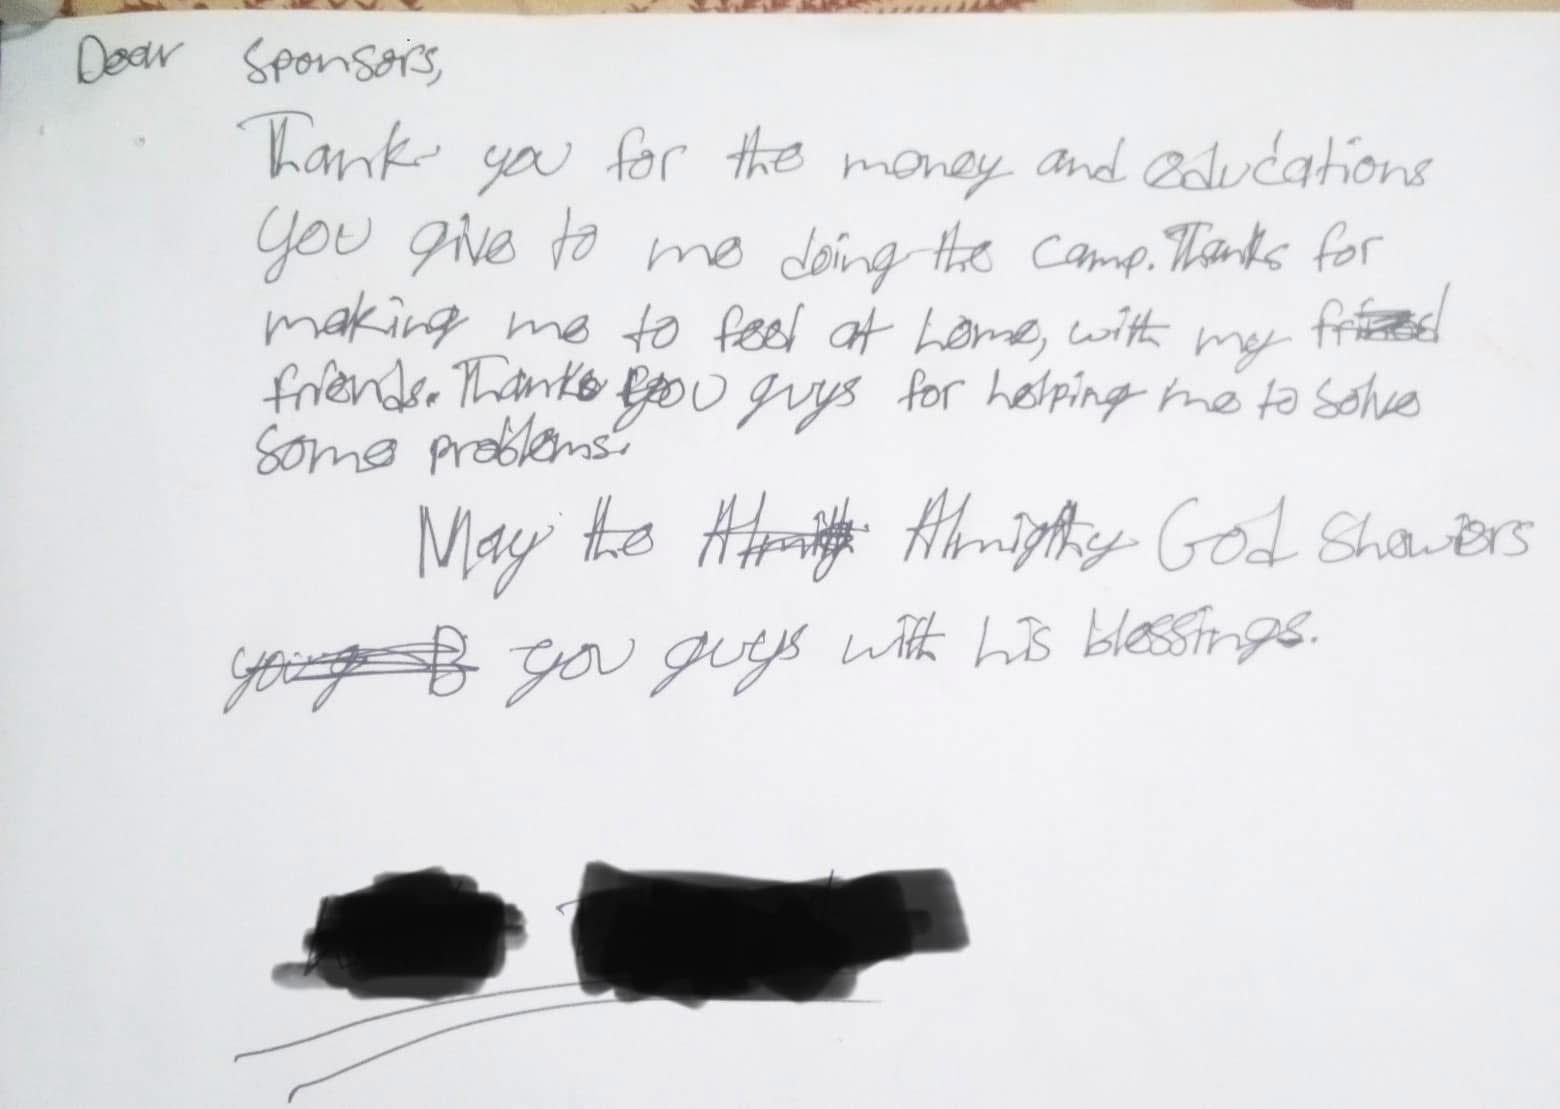 Dear Sponsors,
Thank you for the money and educations
you give to me doing the camp. Thanks for
making me to feel at home, with my
friends. Thanks you guys for helping me to solve
some problems.
May the Almighty God Showers
you guys with his blessings.